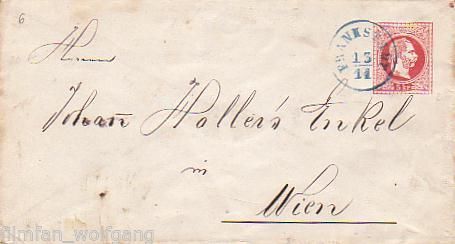 6
FRANKS
13
11
Herrn
Johann Holler's Enkel
in
Wien
filmfan_wolfgang